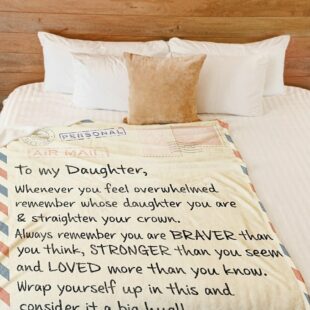 PERSONAL
AIR MAIL
To my Daughter,
Whenever you feel overwhelmed
remember whose daughter you are
& straighten your crown.
Always remember you are BRAVER than
you think, STRONGER than you seem
and LOVED more than you know.
Wrap yourself up in this and
consider it a big hug!!